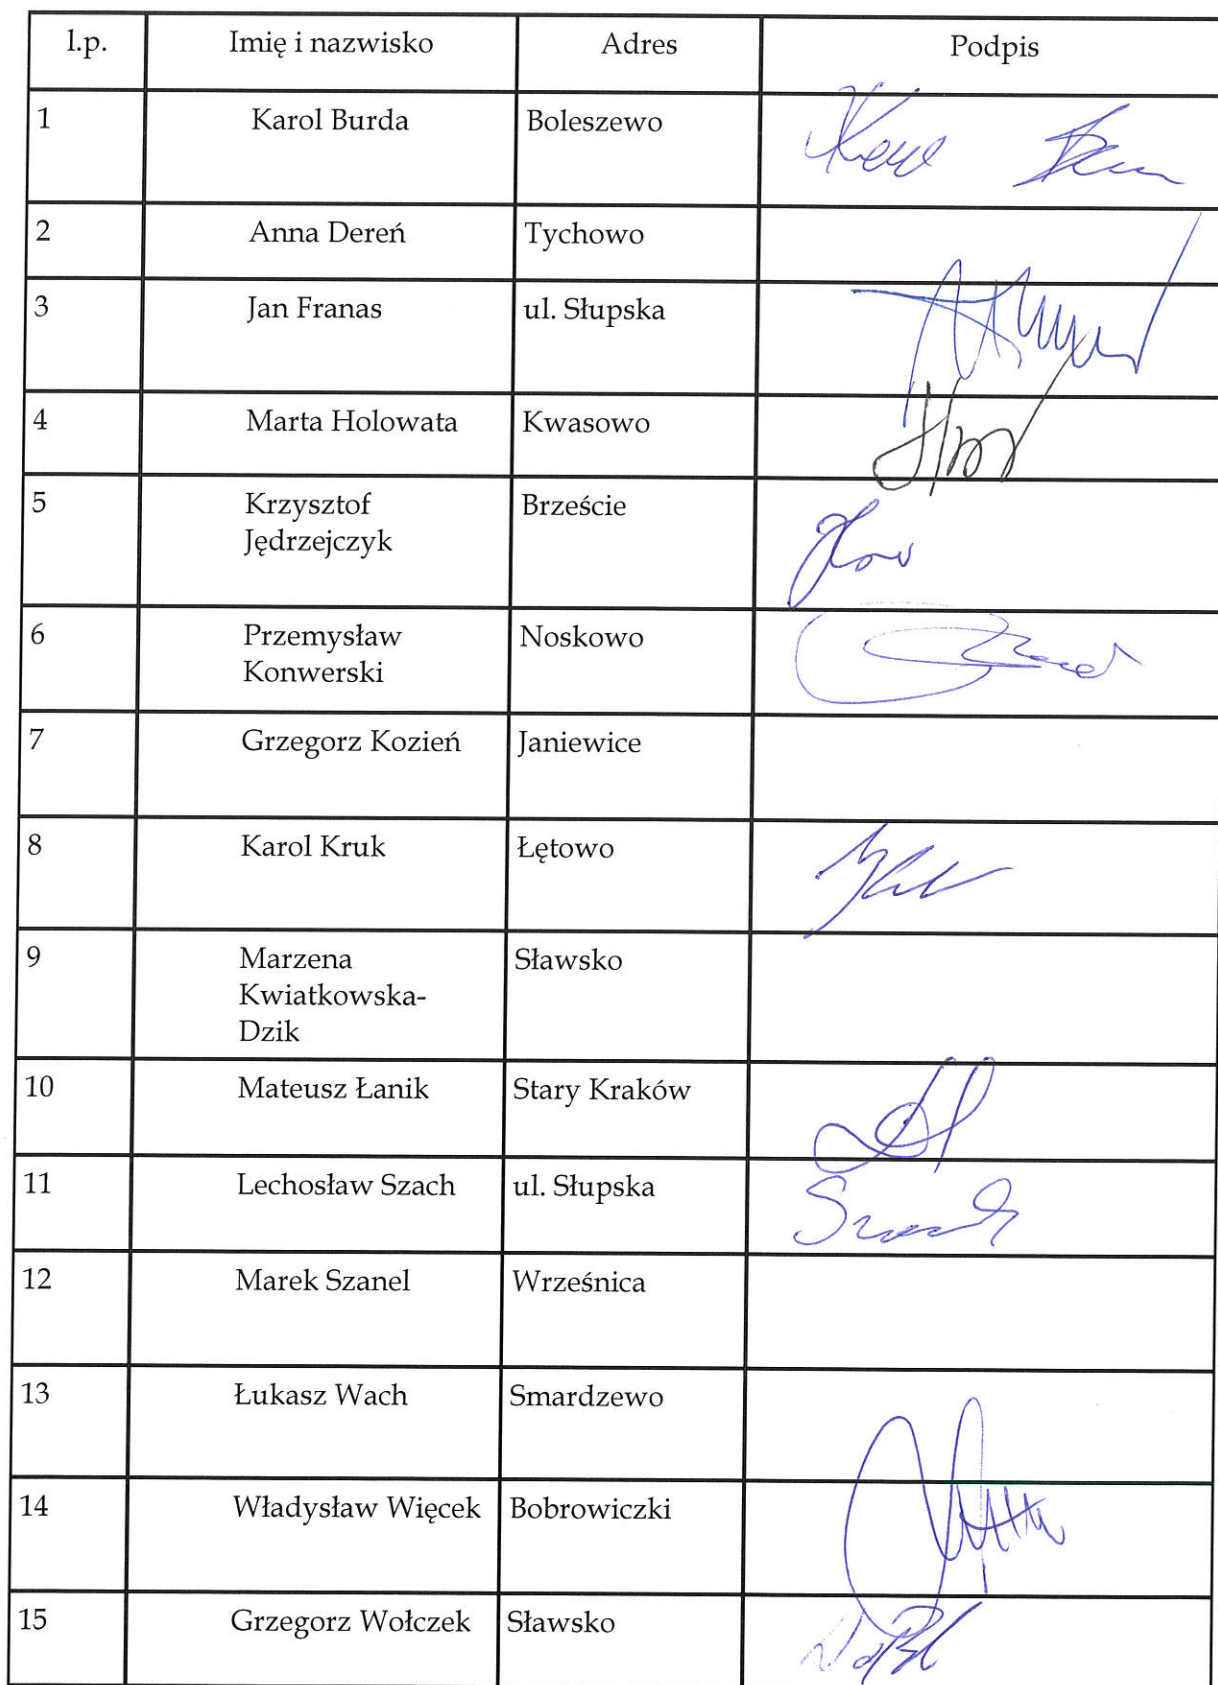 l.p. Imię i nazwisko Adres Podpis
1 Karol Burda Boleszewo
2 Anna Dereń Tychowo
3 Jan Franas ul. Słupska
4 Marta Holowata Kwasowo
5 Krzysztof Brzeście
Jędrzejczyk
6 Przemysław Noskowo
Konwerski
7 Grzegorz Kozień Janiewice
8 Karol Kruk Łętowo
9 Marzena Sławsko
Kwiatkowska-
Dzik
10 Mateusz Łanik Stary Kraków
11 Lechosław Szach ul. Słupska
12 Marek Szanel Wrześnica
13 Łukasz Wach Smardzewo
14 Władysław Więcek Bobrowiczki
15 Grzegorz Wołczek Sławsko